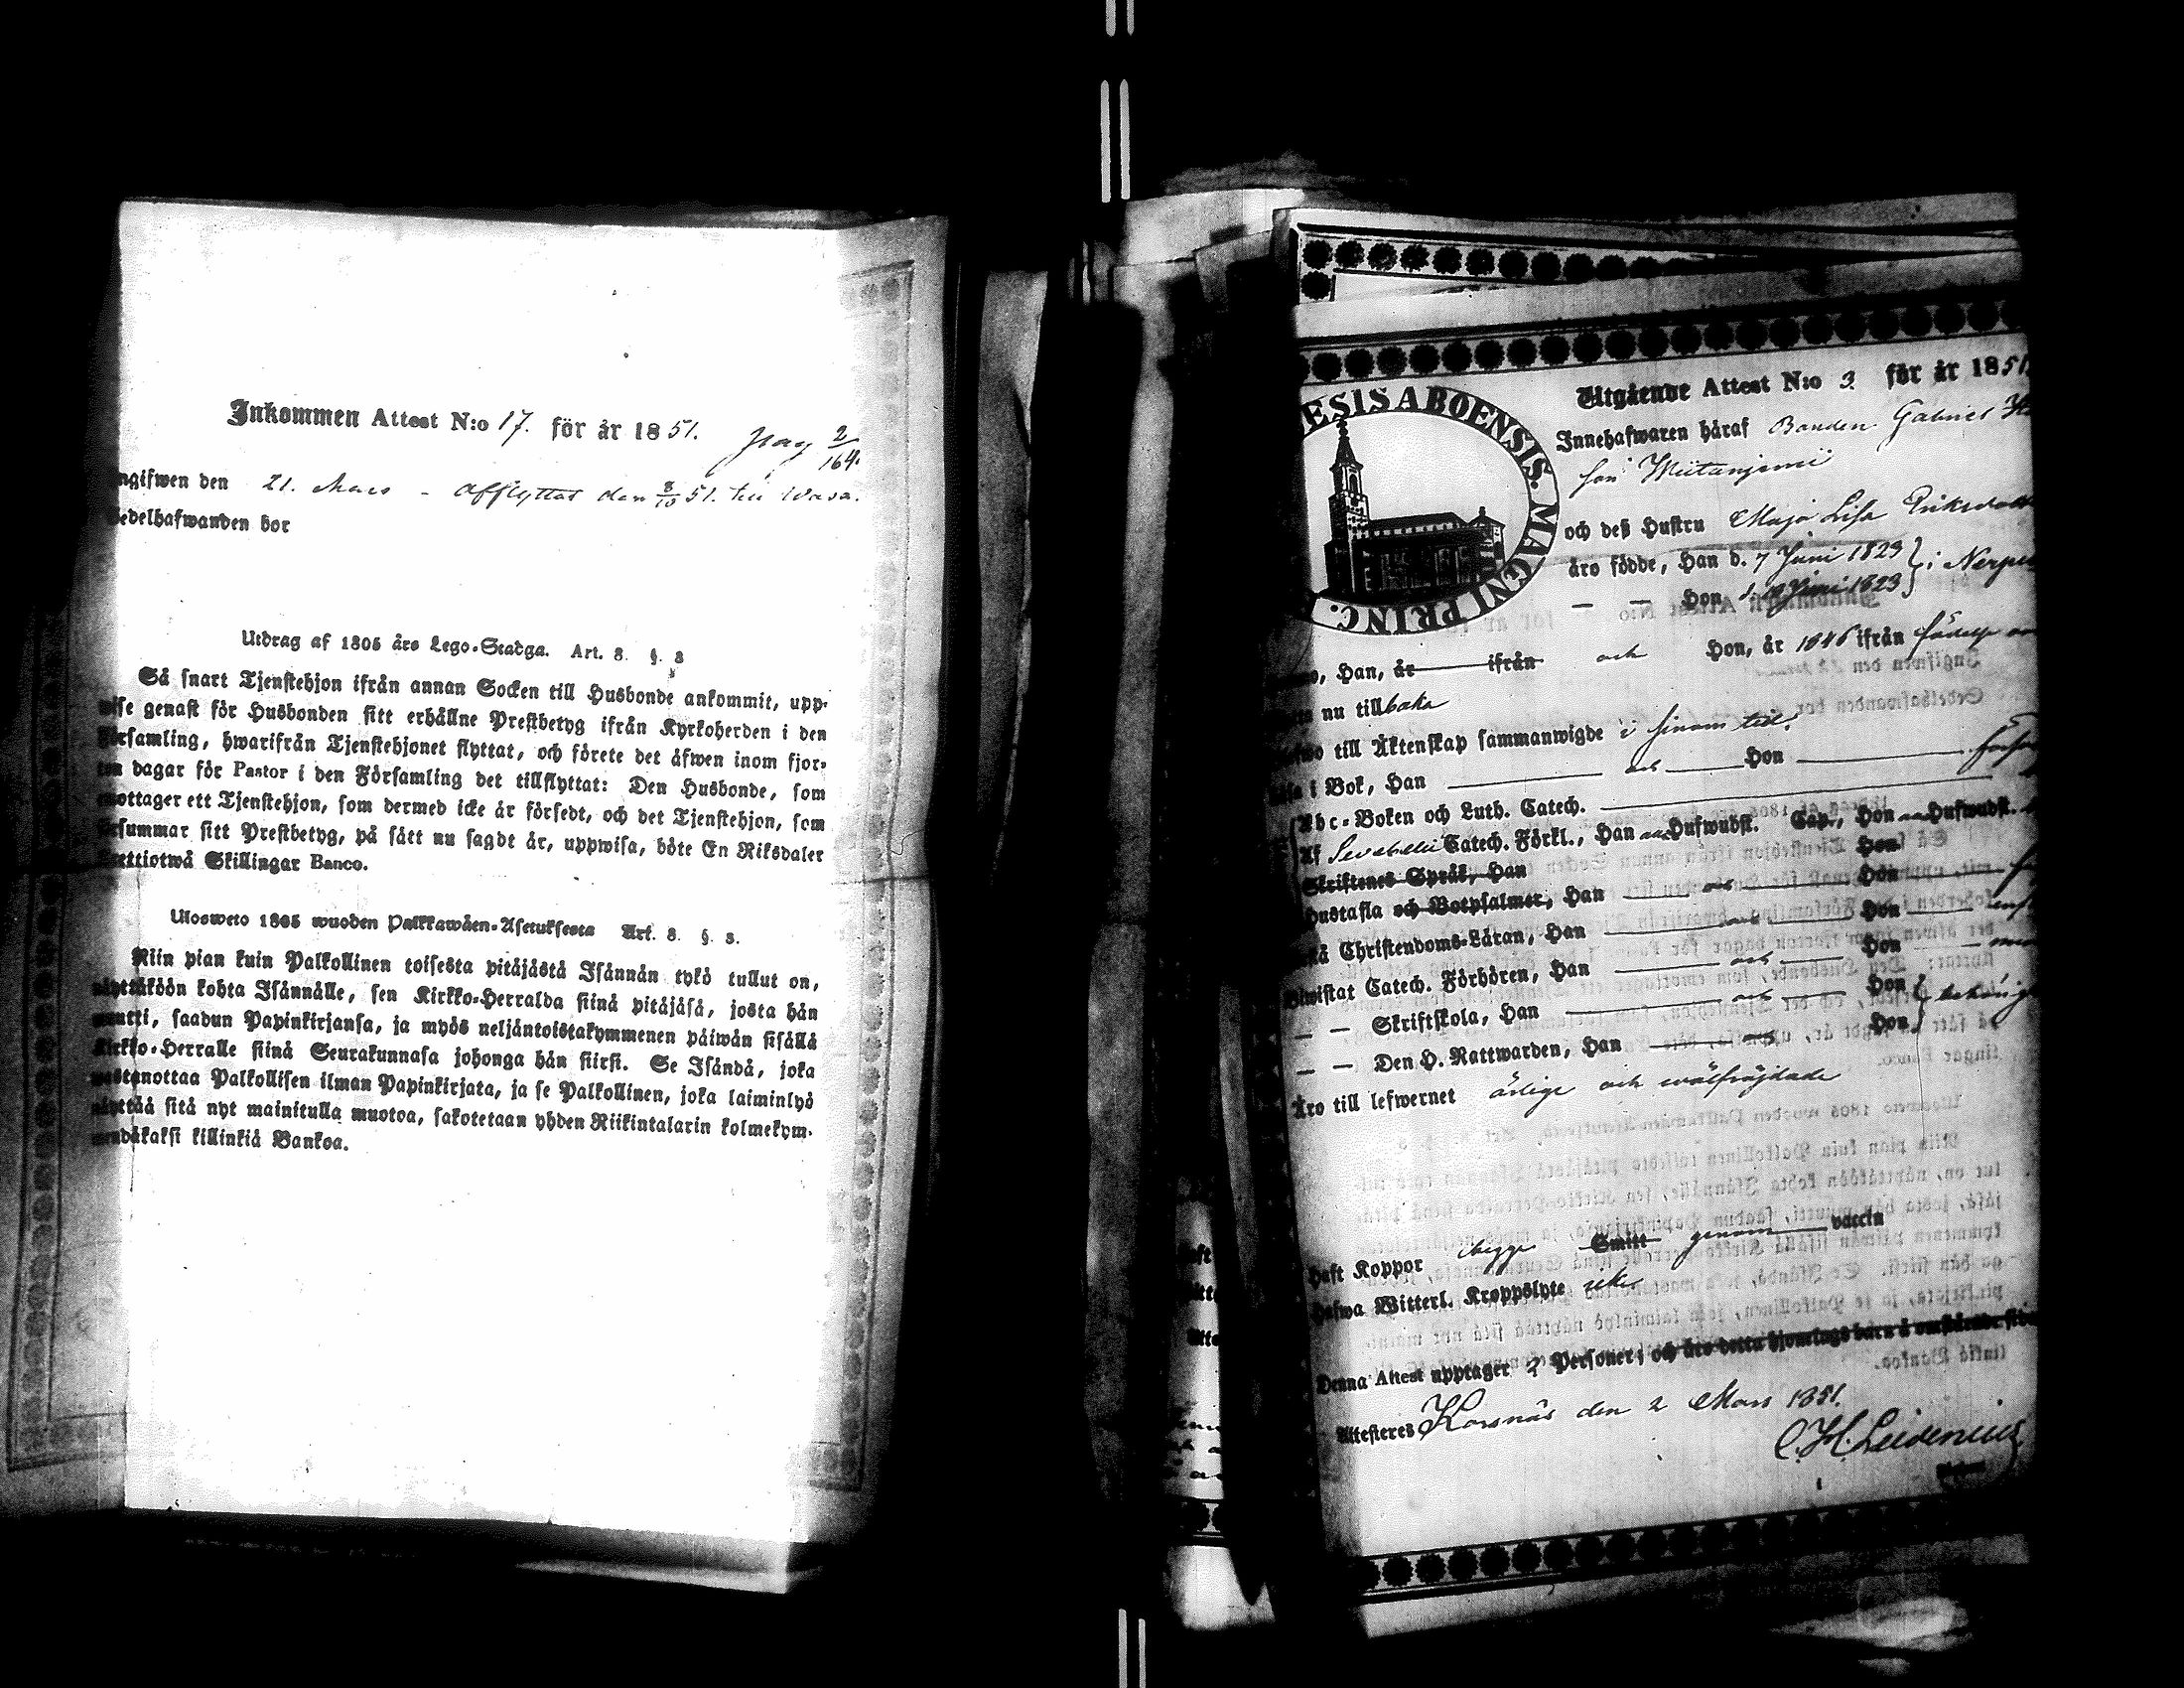 Inkommen Attest N:o 17. för år 1851.
pag 2/164.
ngifwen den 21. Mars - afflyttat den 8/10 51. till Wasa.
edelhafwanden bor
Utdrag af 1805 års Lego-Stadga. Art. 8. §. 3
Så snart Tjenstehjon ifrån annan Socken till Husbonde ankommit, upp-
wise genast för Husbonden sitt erhållne Prestbetyg ifrån Kyrkoherden i den
Församling, hwarifrån Tjenstehjonet flyttat, och förete det äfwen inom fjor-
ton dagar för Pastor i den Församling det tillflyttat: Den Husbonde, som
emottager ett Tjenstehjon, som dermed icke är försedt, och det Tjenstehjon, som
försummar sitt Prestbetyg, på sätt nu sagdt är, uppwisa, böte En Riksdaler
trettiotwå Skillingar Banco.
Ulosweto 1805 wuoden Palkkawäen-Asetuksesta Art. 8. §. 3.
Niin pian kuin Palkollinen toisesta pitäjästä Isännän tykö tullut on,
näyttäköön kohta Isännälle, sen Kirkko-Herralda siinä pitäjäsä, josta hän
muutti, saadun Papinkirjansa, ja myös neljäntoistakymmenen päiwän sisällä
Kirkko-Herralle siinä Seurakunnasa johonga hän siirsi. Se Isändä, joka
wastanottaa Palkollisen ilman Papinkirjata, ja se Palkollinen, joka laiminlyö
näyttää sitä nyt mainitulla muotoa, sakotetaan yhden Riikintalarin kolmekym-
mendäkaksi killinkiä Bankoa.
ESIS ABOENSIS. MAGNI PRINC.
Utgående Attest N:o 3. för år 1851.
Innehafwaren häraf Bonden Gabriel
och deß Hustru Maja Lisa Eriksdott
äro födde, Han d. 7 Juni 1823 } i Nerpes
— — Hon d. Juni 1823
o, Han, år ifrån och Hon, år 1846 ifrån födelse
nu tillbaka
till Äktenskap sammanwigde i sinom tid.
i Bok, Han och Hon
Abc-Boken och Luth. Catech.
Af Catech. Förkl., Han Hufwudst. Cap., Hon Hufwudst.
Skriftenes Språk, Han Hon
Hustafla och Botpsalmer, Han och Hon
Christendoms-Läran, Han och Hon
Biwistat Catech. Förhören, Han och Hon
— — Skriftskola, Han och Hon
— — Den H. Nattwarden, Han och Hon
Äro till lefwernet ärlige och wälfräjdade
Haft Koppor begge Smitt genom vaccin
Hafwa Witterl. Kroppslyte icke
Denna Attest upptager 2 Personer; och äro detta hjonelags barn å omstående sida
Attesteres Korsnäs den 2 Mars 1851.